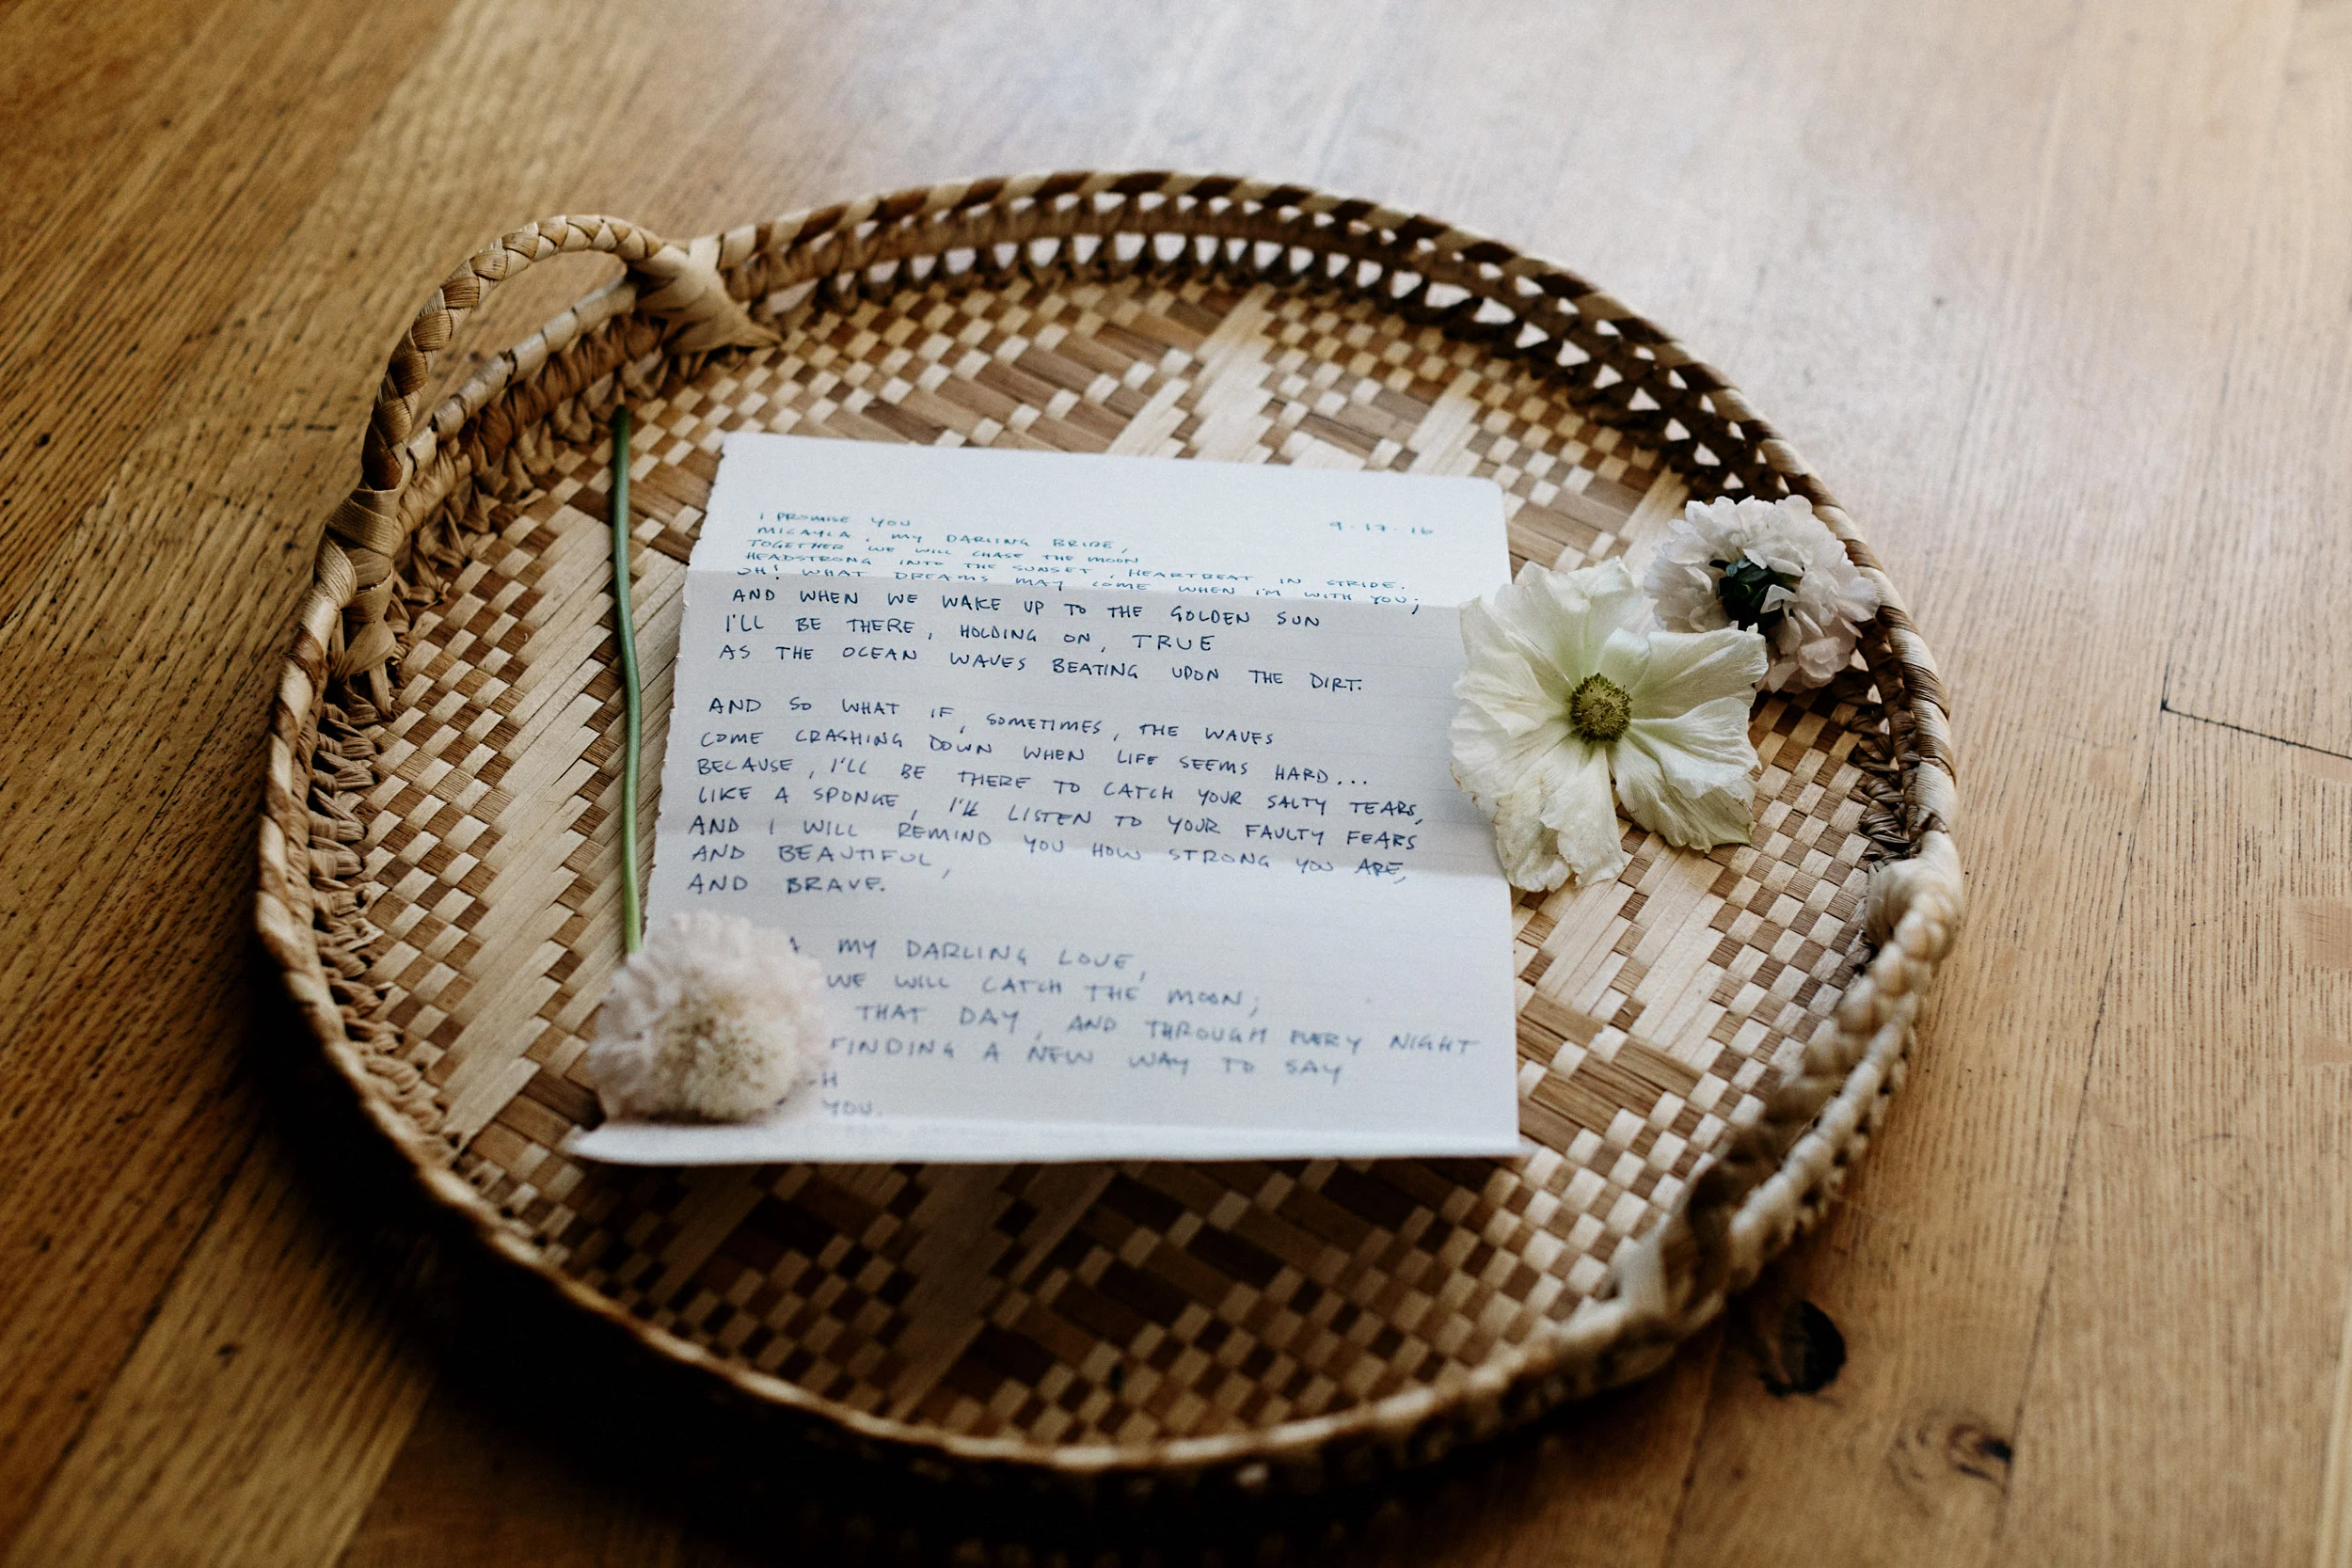 9.17.16
I PROMISE YOU
MICAYLA, MY DARLING BRIDE,
TOGETHER WE WILL CHASE THE MOON
HEADSTRONG INTO THE SUNSET, HEARTBEAT IN STRIDE.
OH! WHAT DREAMS MAY COME WHEN I'M WITH YOU;
AND WHEN WE WAKE UP TO THE GOLDEN SUN
I'LL BE THERE, HOLDING ON, TRUE
AS THE OCEAN WAVES BEATING UPON THE DIRT.
AND SO WHAT IF, SOMETIMES, THE WAVES
COME CRASHING DOWN WHEN LIFE SEEMS HARD...
BECAUSE, I'LL BE THERE TO CATCH YOUR SALTY TEARS,
LIKE A SPONGE, I'LL LISTEN TO YOUR FAULTY FEARS
AND I WILL REMIND YOU HOW STRONG YOU ARE,
AND BEAUTIFUL,
AND BRAVE.
MY DARLING LOVE,
WE WILL CATCH THE MOON;
THAT DAY, AND THROUGH EVERY NIGHT
FINDING A NEW WAY TO SAY
YOU.